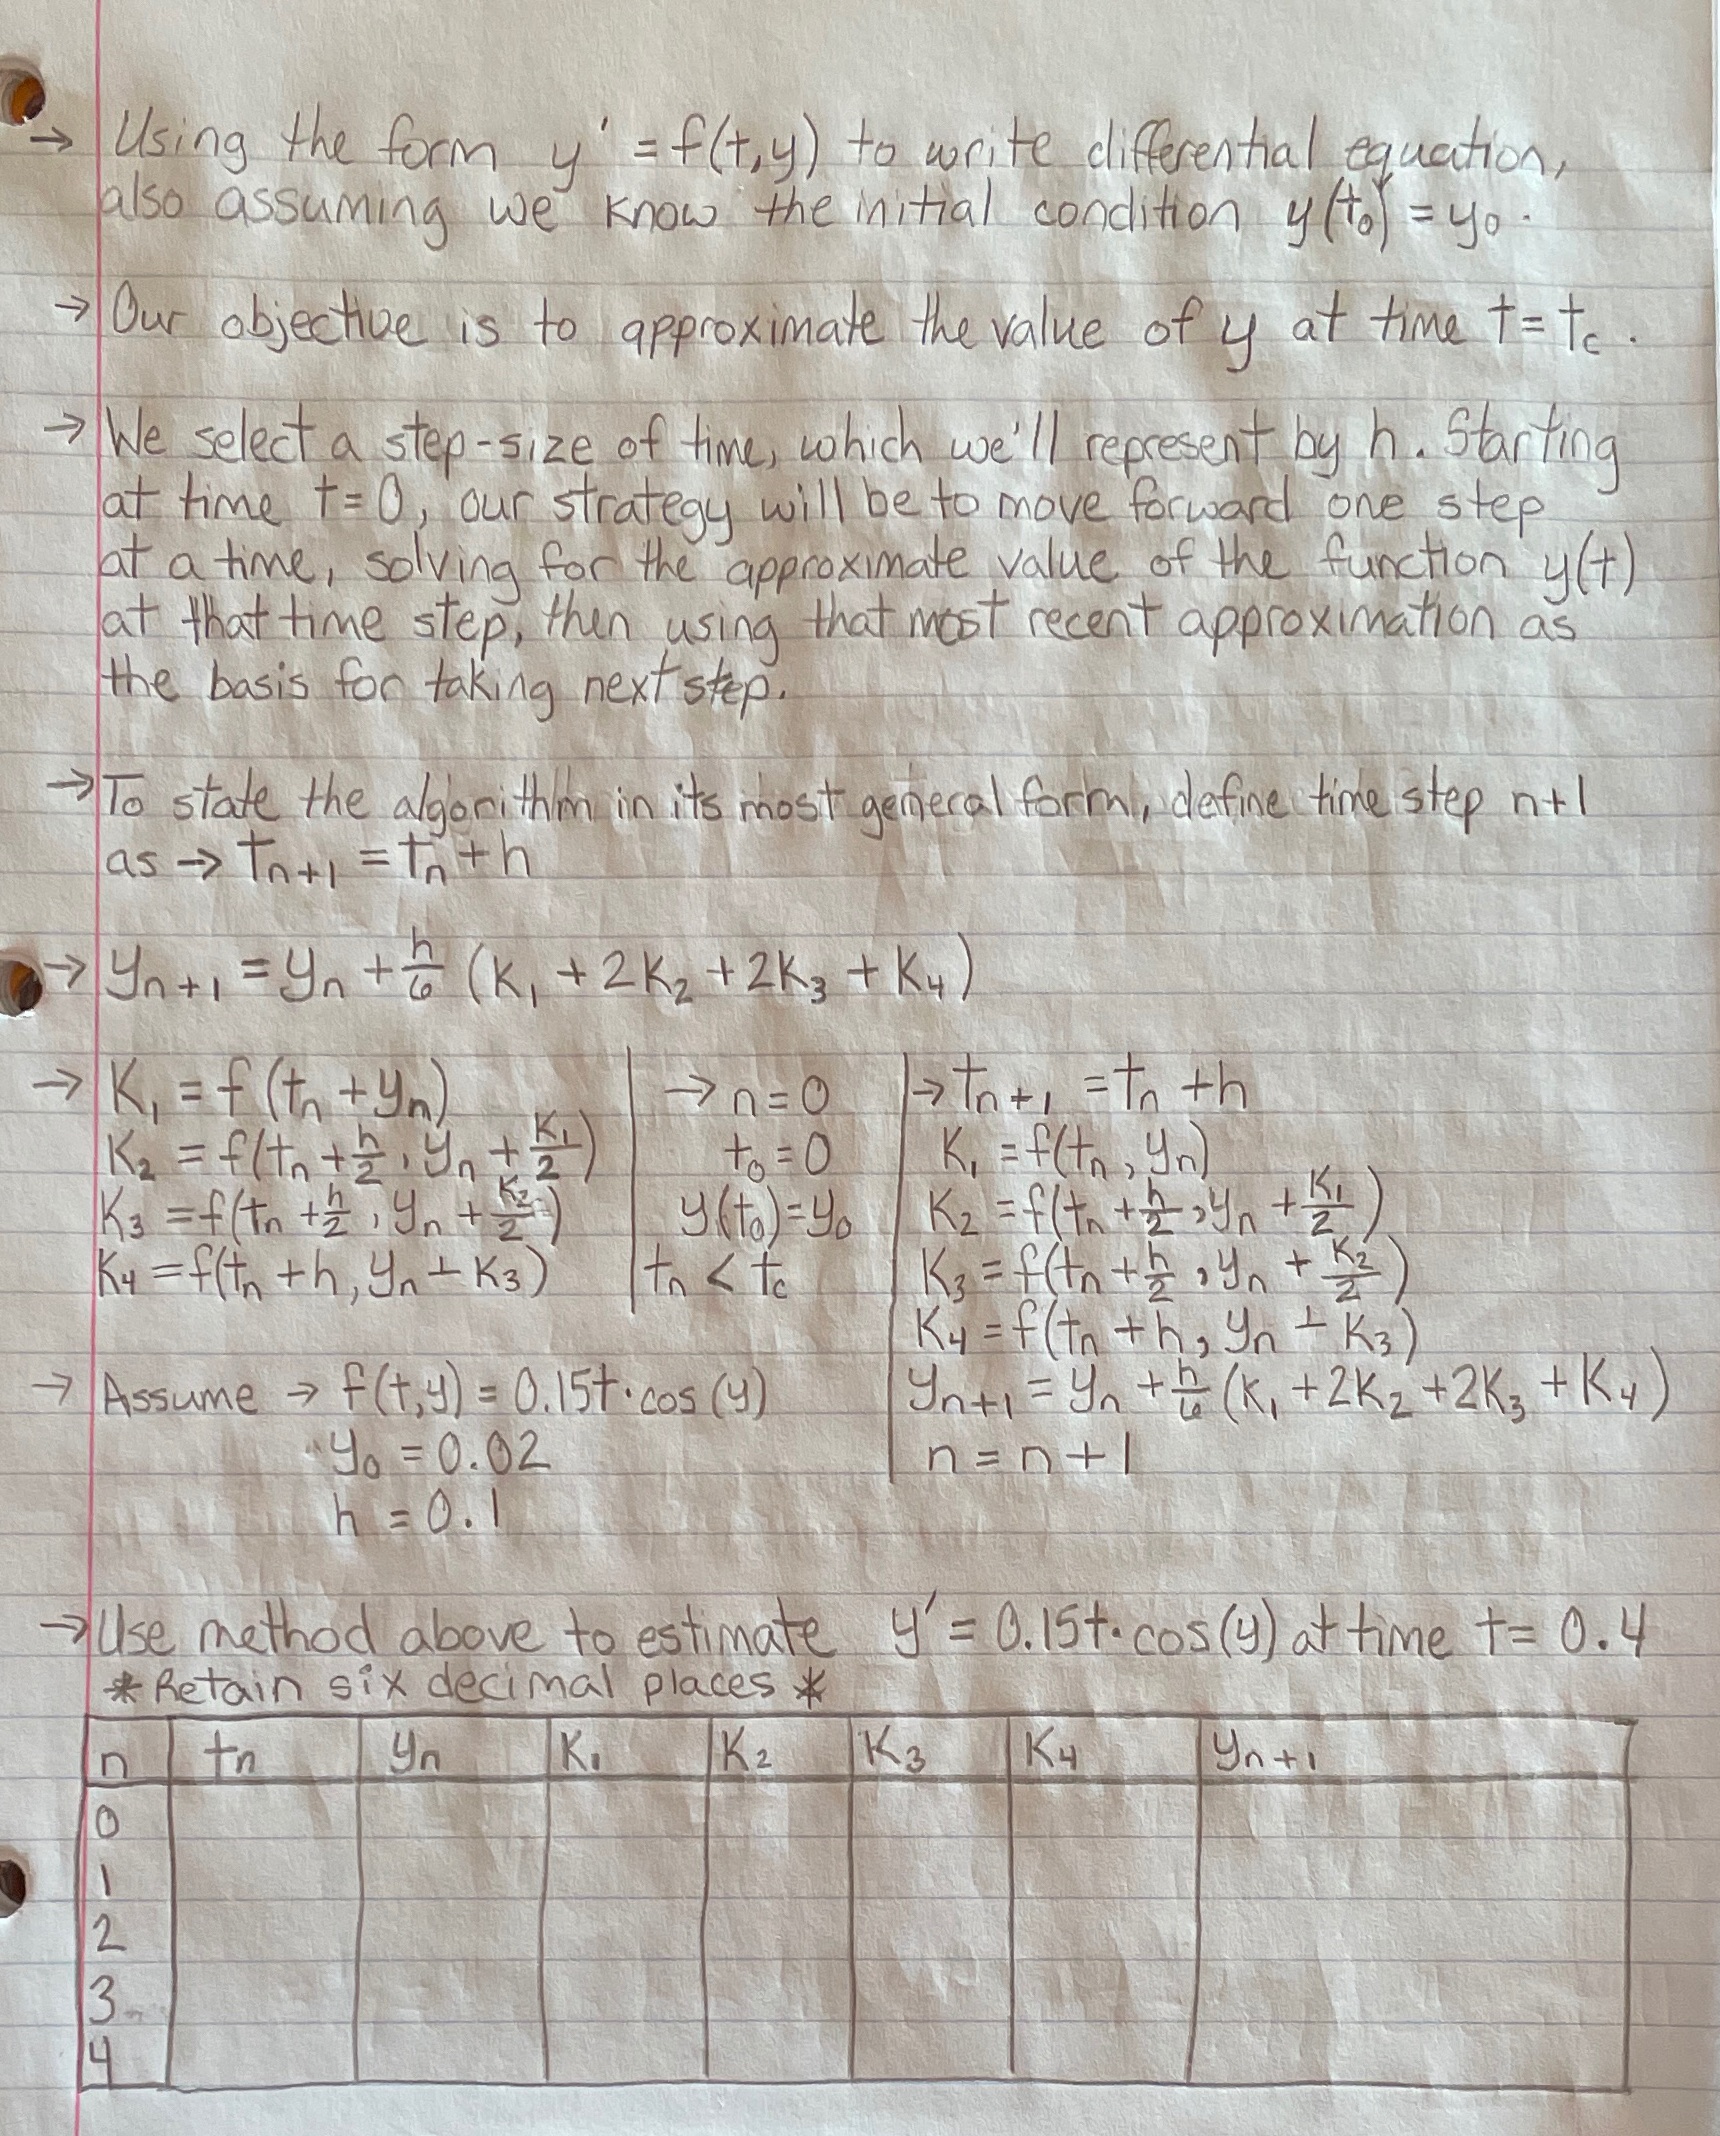 → Using the form y' = f(t,y) to write differential equation,
also assuming we know the initial condition y(t₀) = y₀.
→ Our objective is to approximate the value of y at time t = t꜀.
→ We select a step-size of time, which we'll represent by h. Starting
at time t = 0, our strategy will be to move forward one step
at a time, solving for the approximate value of the function y(t)
at that time step, then using that most recent approximation as
the basis for taking next step.
→ To state the algorithm in its most general form, define time step n+1
as → tₙ₊₁ = tₙ + h
→ yₙ₊₁ = yₙ + h/6 (K₁ + 2K₂ + 2K₃ + K₄)
→ K₁ = f(tₙ + yₙ)
K₂ = f(tₙ + h/2, yₙ + K₁/2)
K₃ = f(tₙ + h/2, yₙ + K₂/2)
K₄ = f(tₙ + h, yₙ + K₃)
→ n = 0
t₀ = 0
y(t₀) = y₀
tₙ < t꜀
→ tₙ₊₁ = tₙ + h
K₁ = f(tₙ, yₙ)
K₂ = f(tₙ + h/2, yₙ + K₁/2)
K₃ = f(tₙ + h/2, yₙ + K₂/2)
K₄ = f(tₙ + h, yₙ + K₃)
yₙ₊₁ = yₙ + h/6 (K₁ + 2K₂ + 2K₃ + K₄)
n = n + 1
→ Assume → f(t,y) = 0.15t · cos(y)
y₀ = 0.02
h = 0.1
→ Use method above to estimate y' = 0.15t · cos(y) at time t = 0.4
* Retain six decimal places *
n tₙ yₙ K₁ K₂ K₃ K₄ yₙ₊₁
0
1
2
3
4